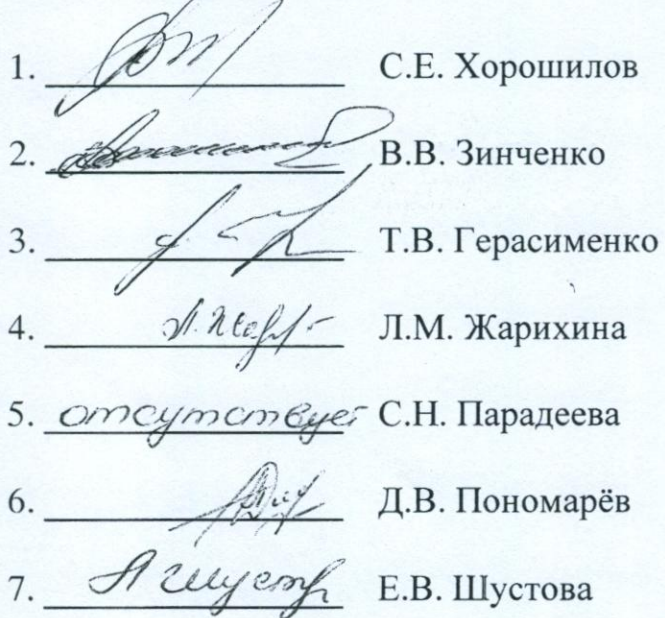 1. С.Е. Хорошилов
2. В.В. Зинченко
3. Т.В. Герасименко
4. Л.М. Жарихина
5. отсутствует С.Н. Парадеева
6. Д.В. Пономарёв
7. Е.В. Шустова